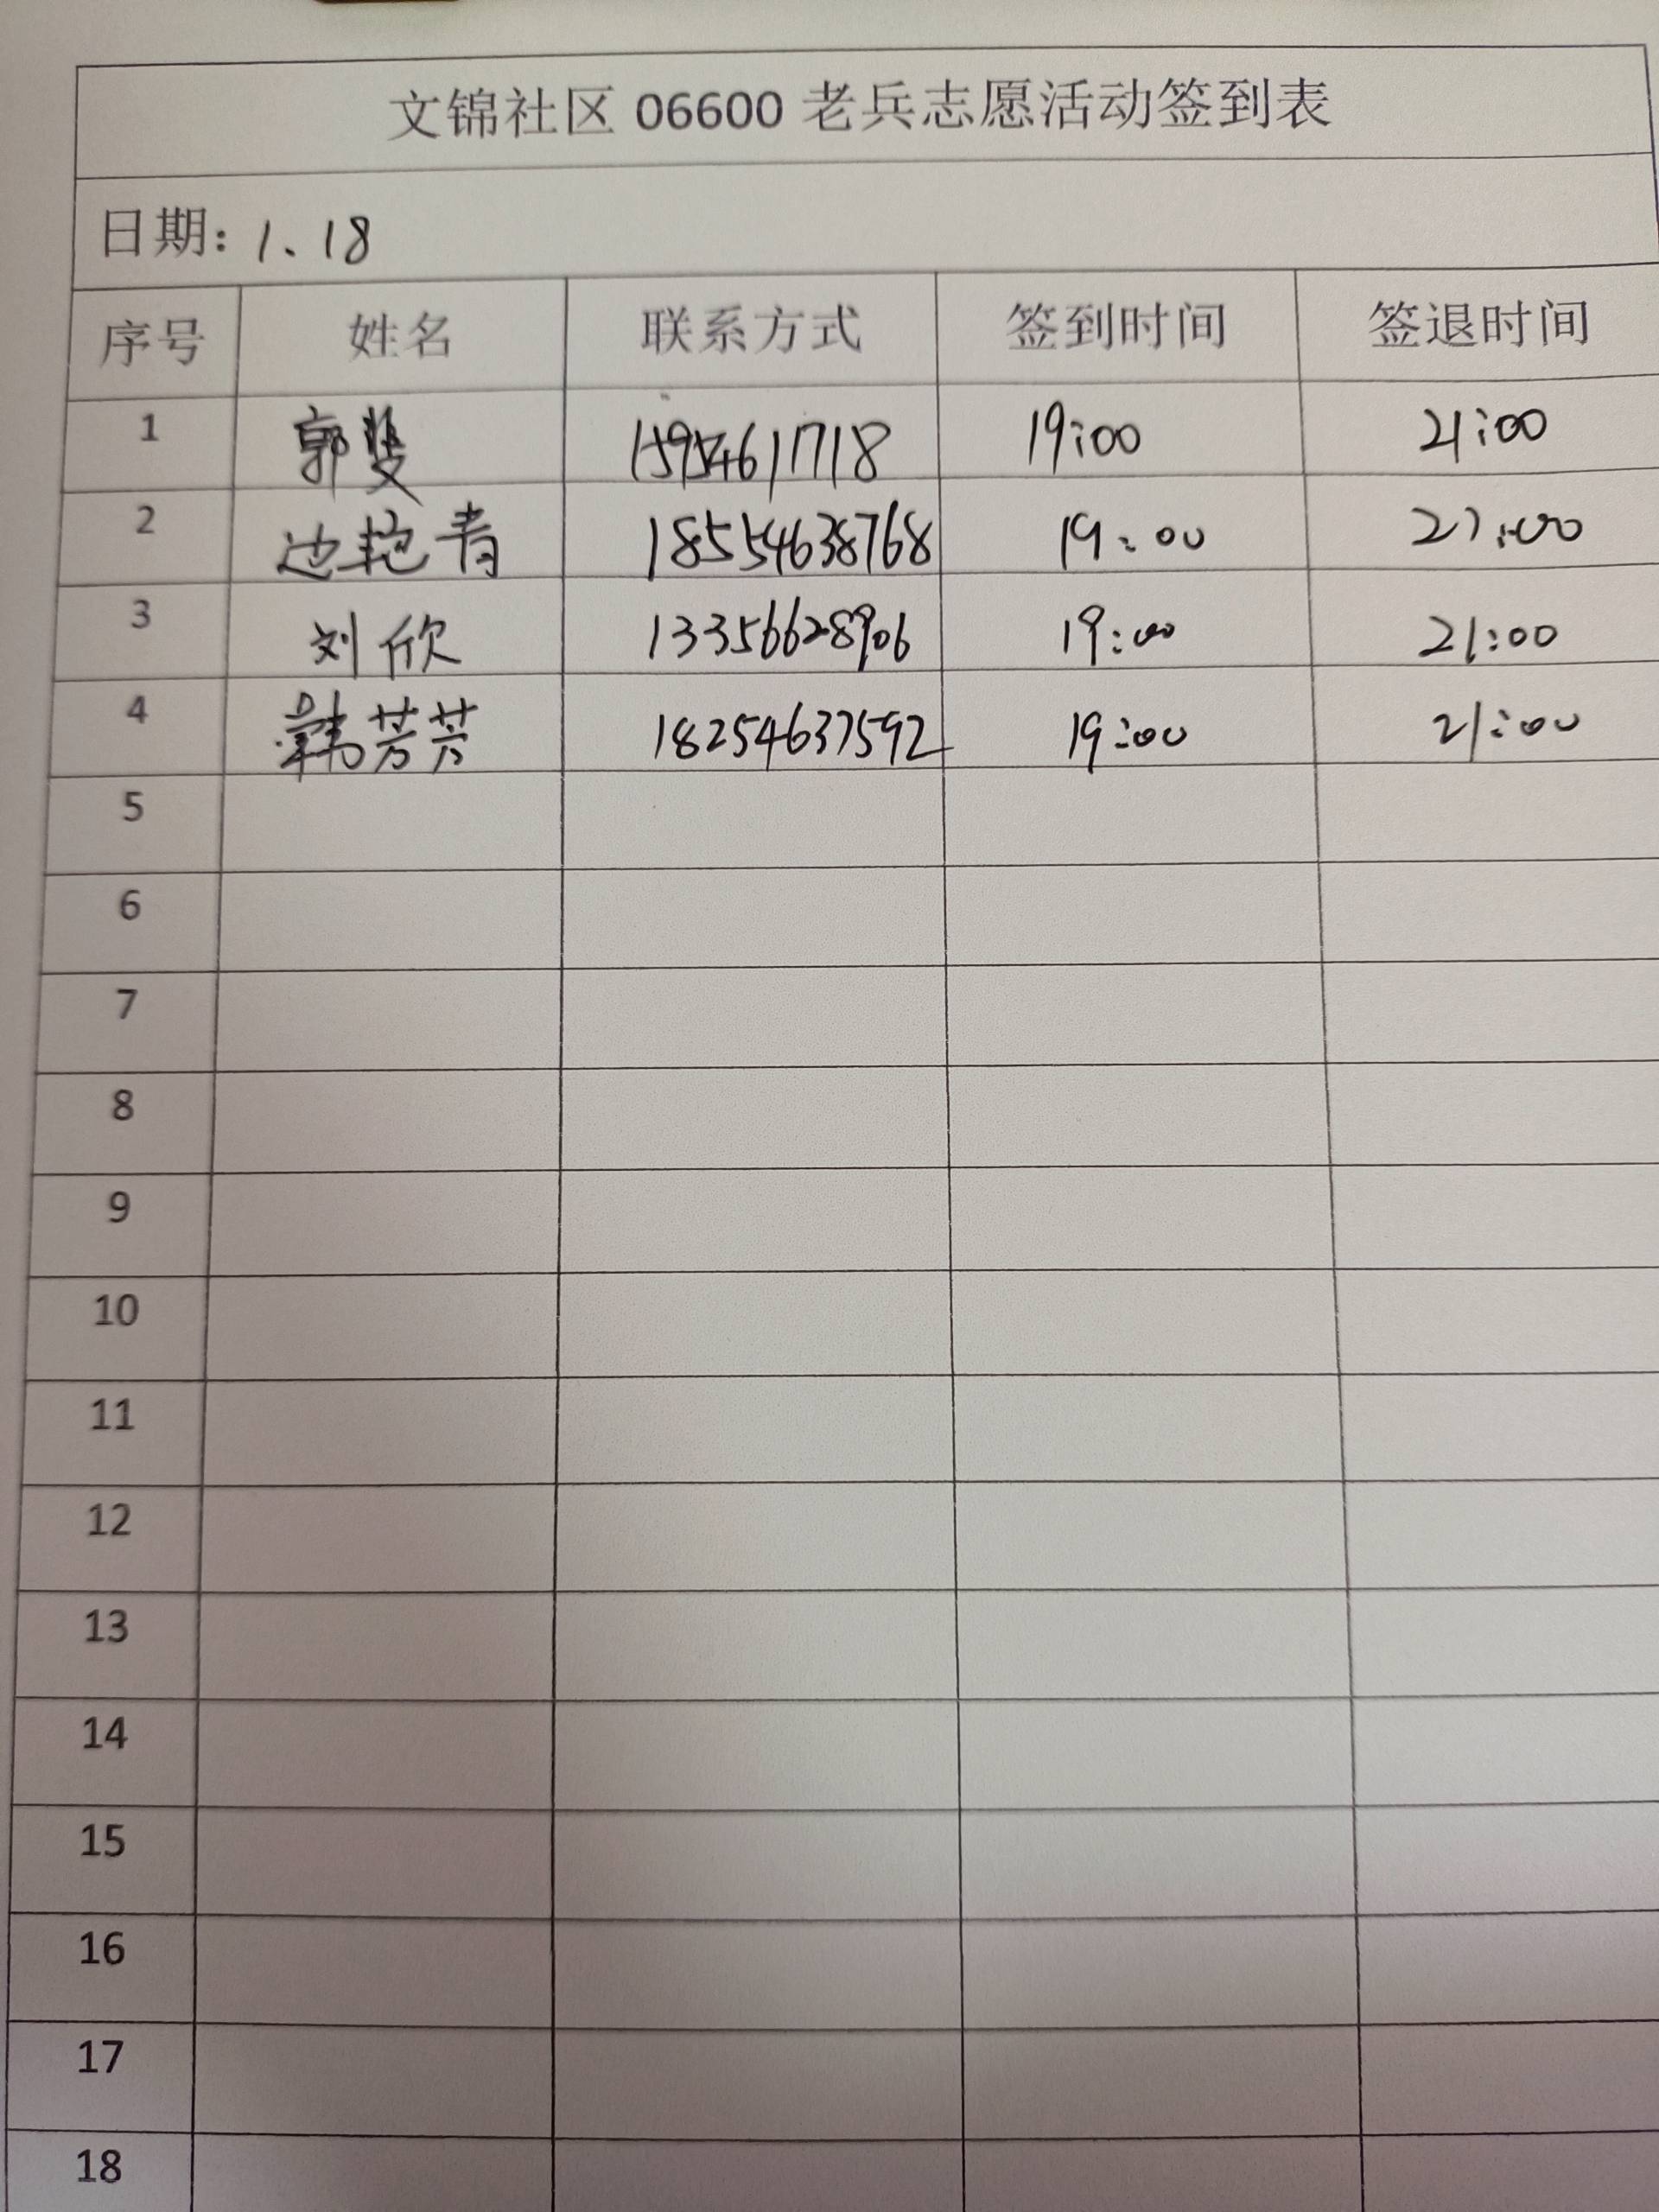 文锦社区 06600 老兵志愿活动签到表
日期: 1.18
序号 姓名 联系方式 签到时间 签退时间
1 郭 19:00 21:00
2 边艳青 18554638768 19:00 21:00
3 刘欣 13356628906 19:00 21:00
4 韩芳芳 18254637592 19:00 21:00
5
6
7
8
9
10
11
12
13
14
15
16
17
18